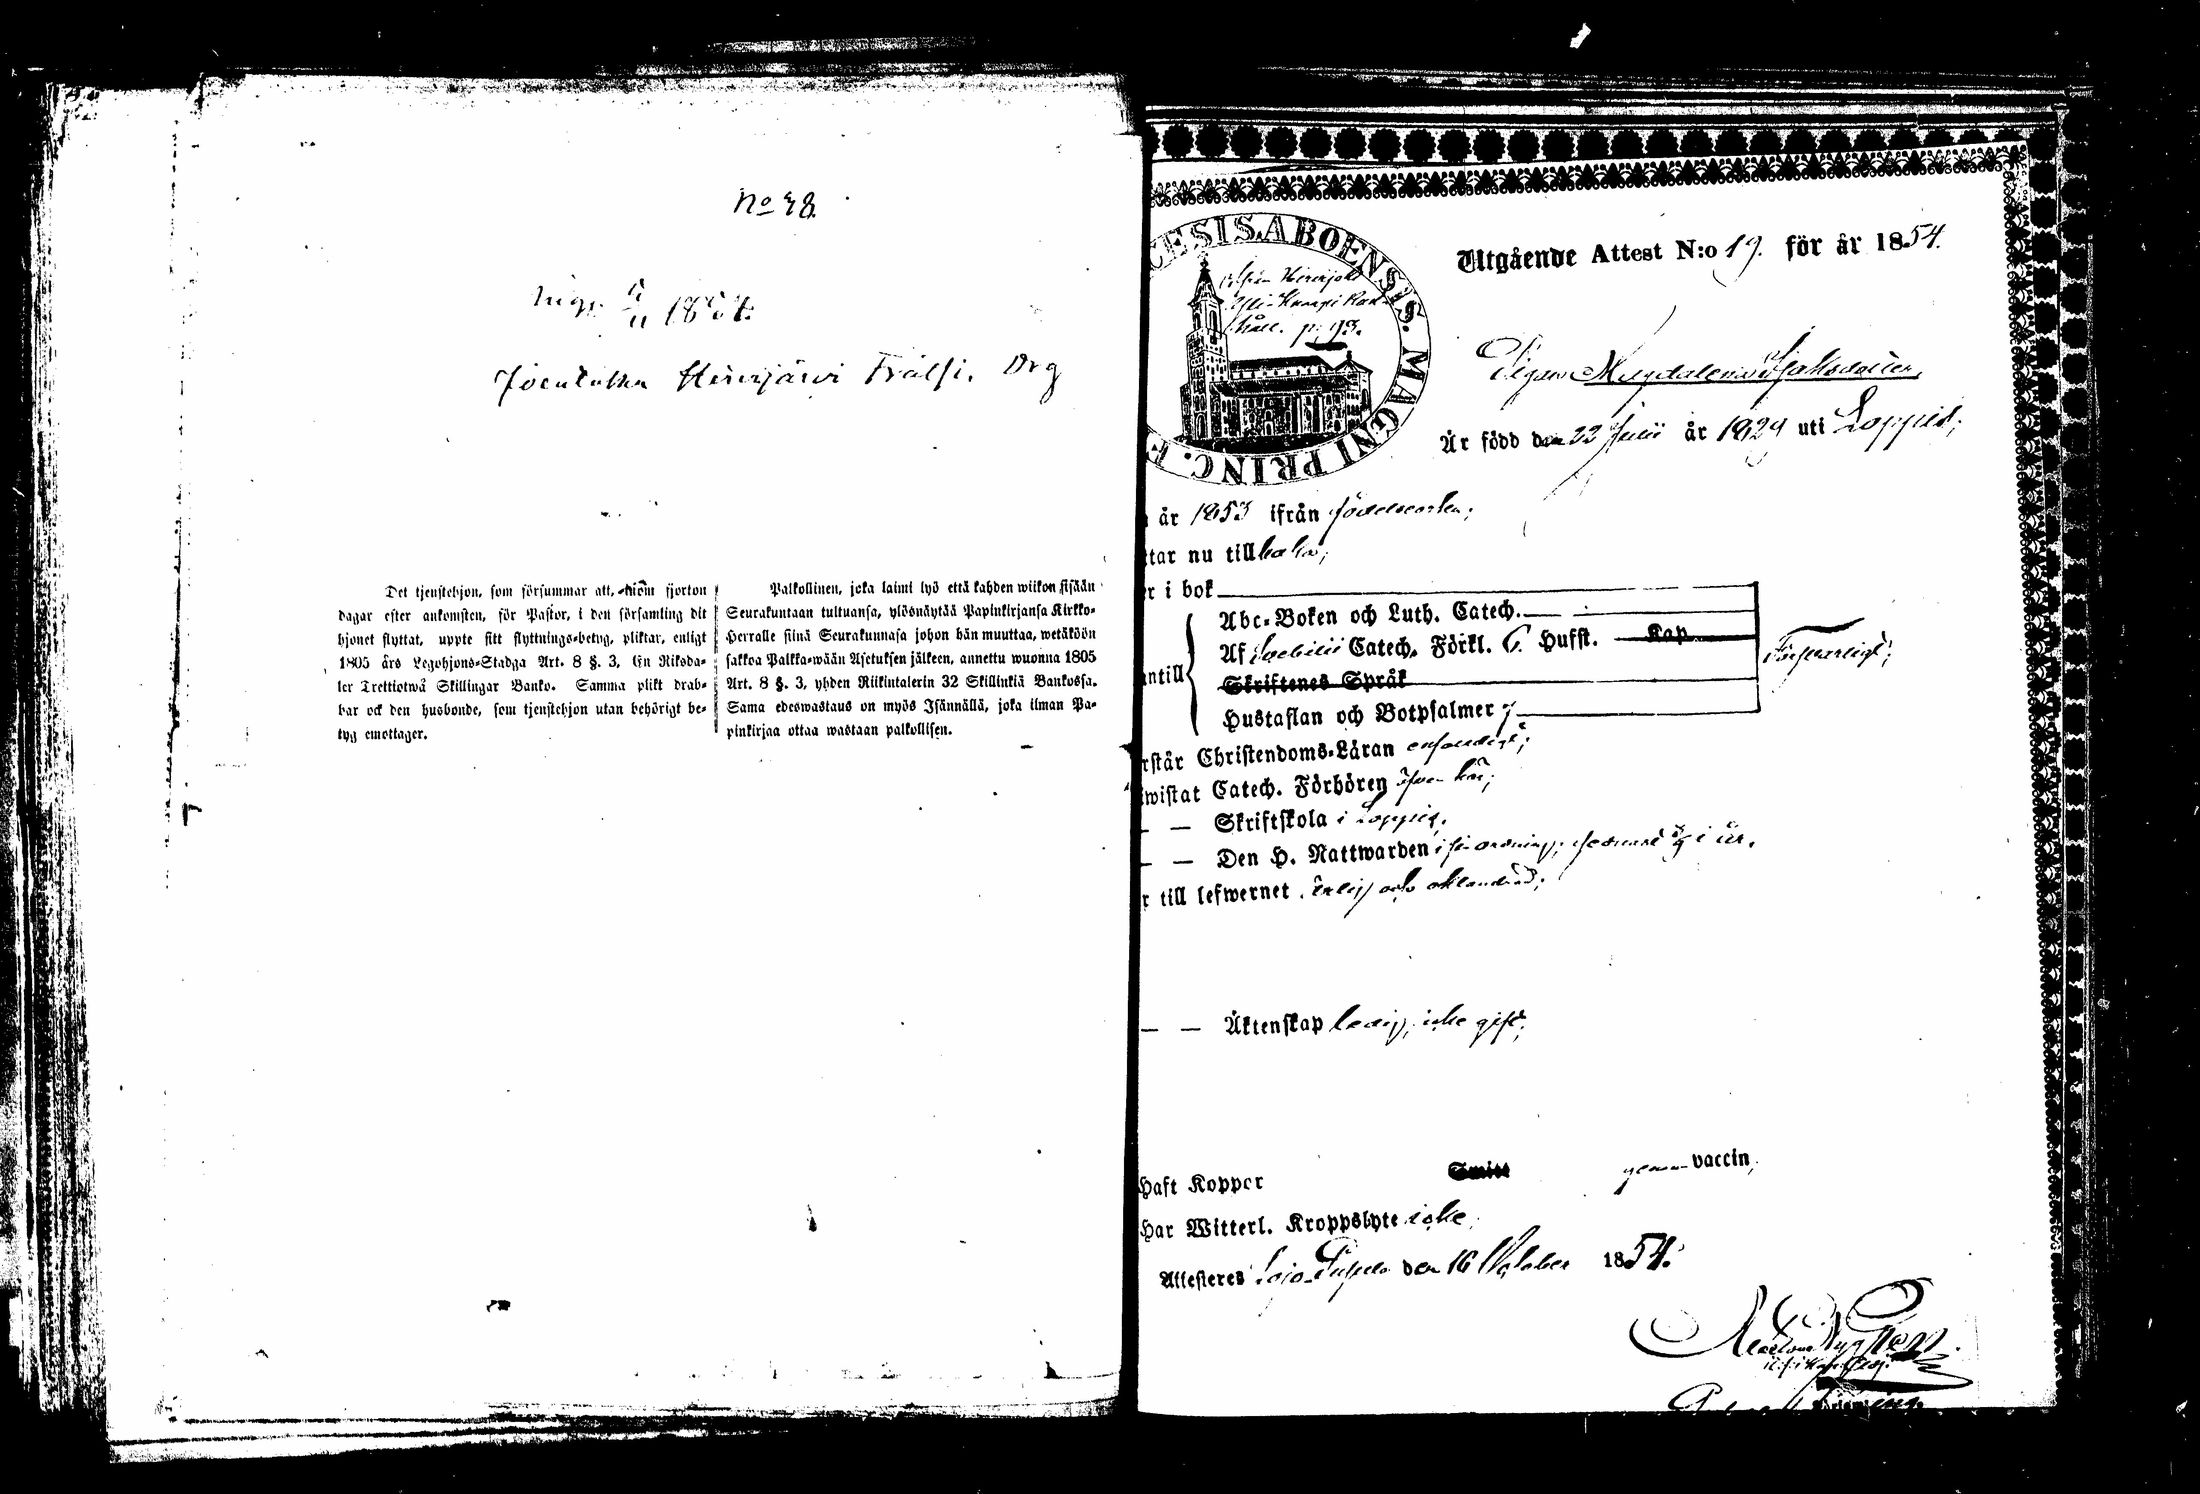 No 48.
1854.
Hirvijärvi Frälsi. Drg
Det tjenstehjon, som försummar att, inom fjorton
dagar efter ankomsten, för Pastor, i den församling dit
hjonet flyttat, uppte sitt flyttnings-betyg, pliktar, enligt
1805 års Legohjons-Stadga Art. 8 §. 3, En Riksda-
ler Trettiotwå Skillingar Banko. Samma plikt drab-
bar ock den husbonde, som tjenstehjon utan behörigt be-
tyg emottager.
Palkollinen, joka laimi lyö että kahden wiikon sisään
Seurakuntaan tultuansa, ylösnäytää Papinkirjansa Kirkko-
Herralle siinä Seurakunnasa johon hän muuttaa, wetäköön
sakkoa Palkka-wään Asetuksen jälkeen, annettu wuonna 1805
Art. 8 §. 3, yhden Riikintalerin 32 Skillinkiä Bankossa.
Sama edeswastaus on myös Isännällä, joka ilman Pa-
pinkirjaa ottaa wastaan palkollisen.
CESIS. ABOENSIS. MAGNI PRINC. F
Utgående Attest N:o 19. för år 1854.
Pigan Magdalena
Är född den 22 Julii år 1829 uti Loppis;
år 1853 ifrån födelseorten;
tar nu tillbaka;
r i bok
Abc-Boken och Luth. Catech.
Af Swebilii Catech. Förkl. 6. Hufst. Kap
ntill Skriftenes Språk
Försvarligt;
Hustaflan och Botpsalmer
rstår Christendoms-Läran enfaldigt;
wistat Catech. Förhören äfven här;
— — Skriftskola i Loppis;
— — Den H. Nattwarden i sin ordning, senast i år.
r till lefwernet ärlig och oklandrad;
— — Äktenskap ledig, icke gift;
Haft Koppor Smitt genom vaccin;
Har Witterl. Kroppslyte icke.
Attesteres Lojo den 16 October 1854.